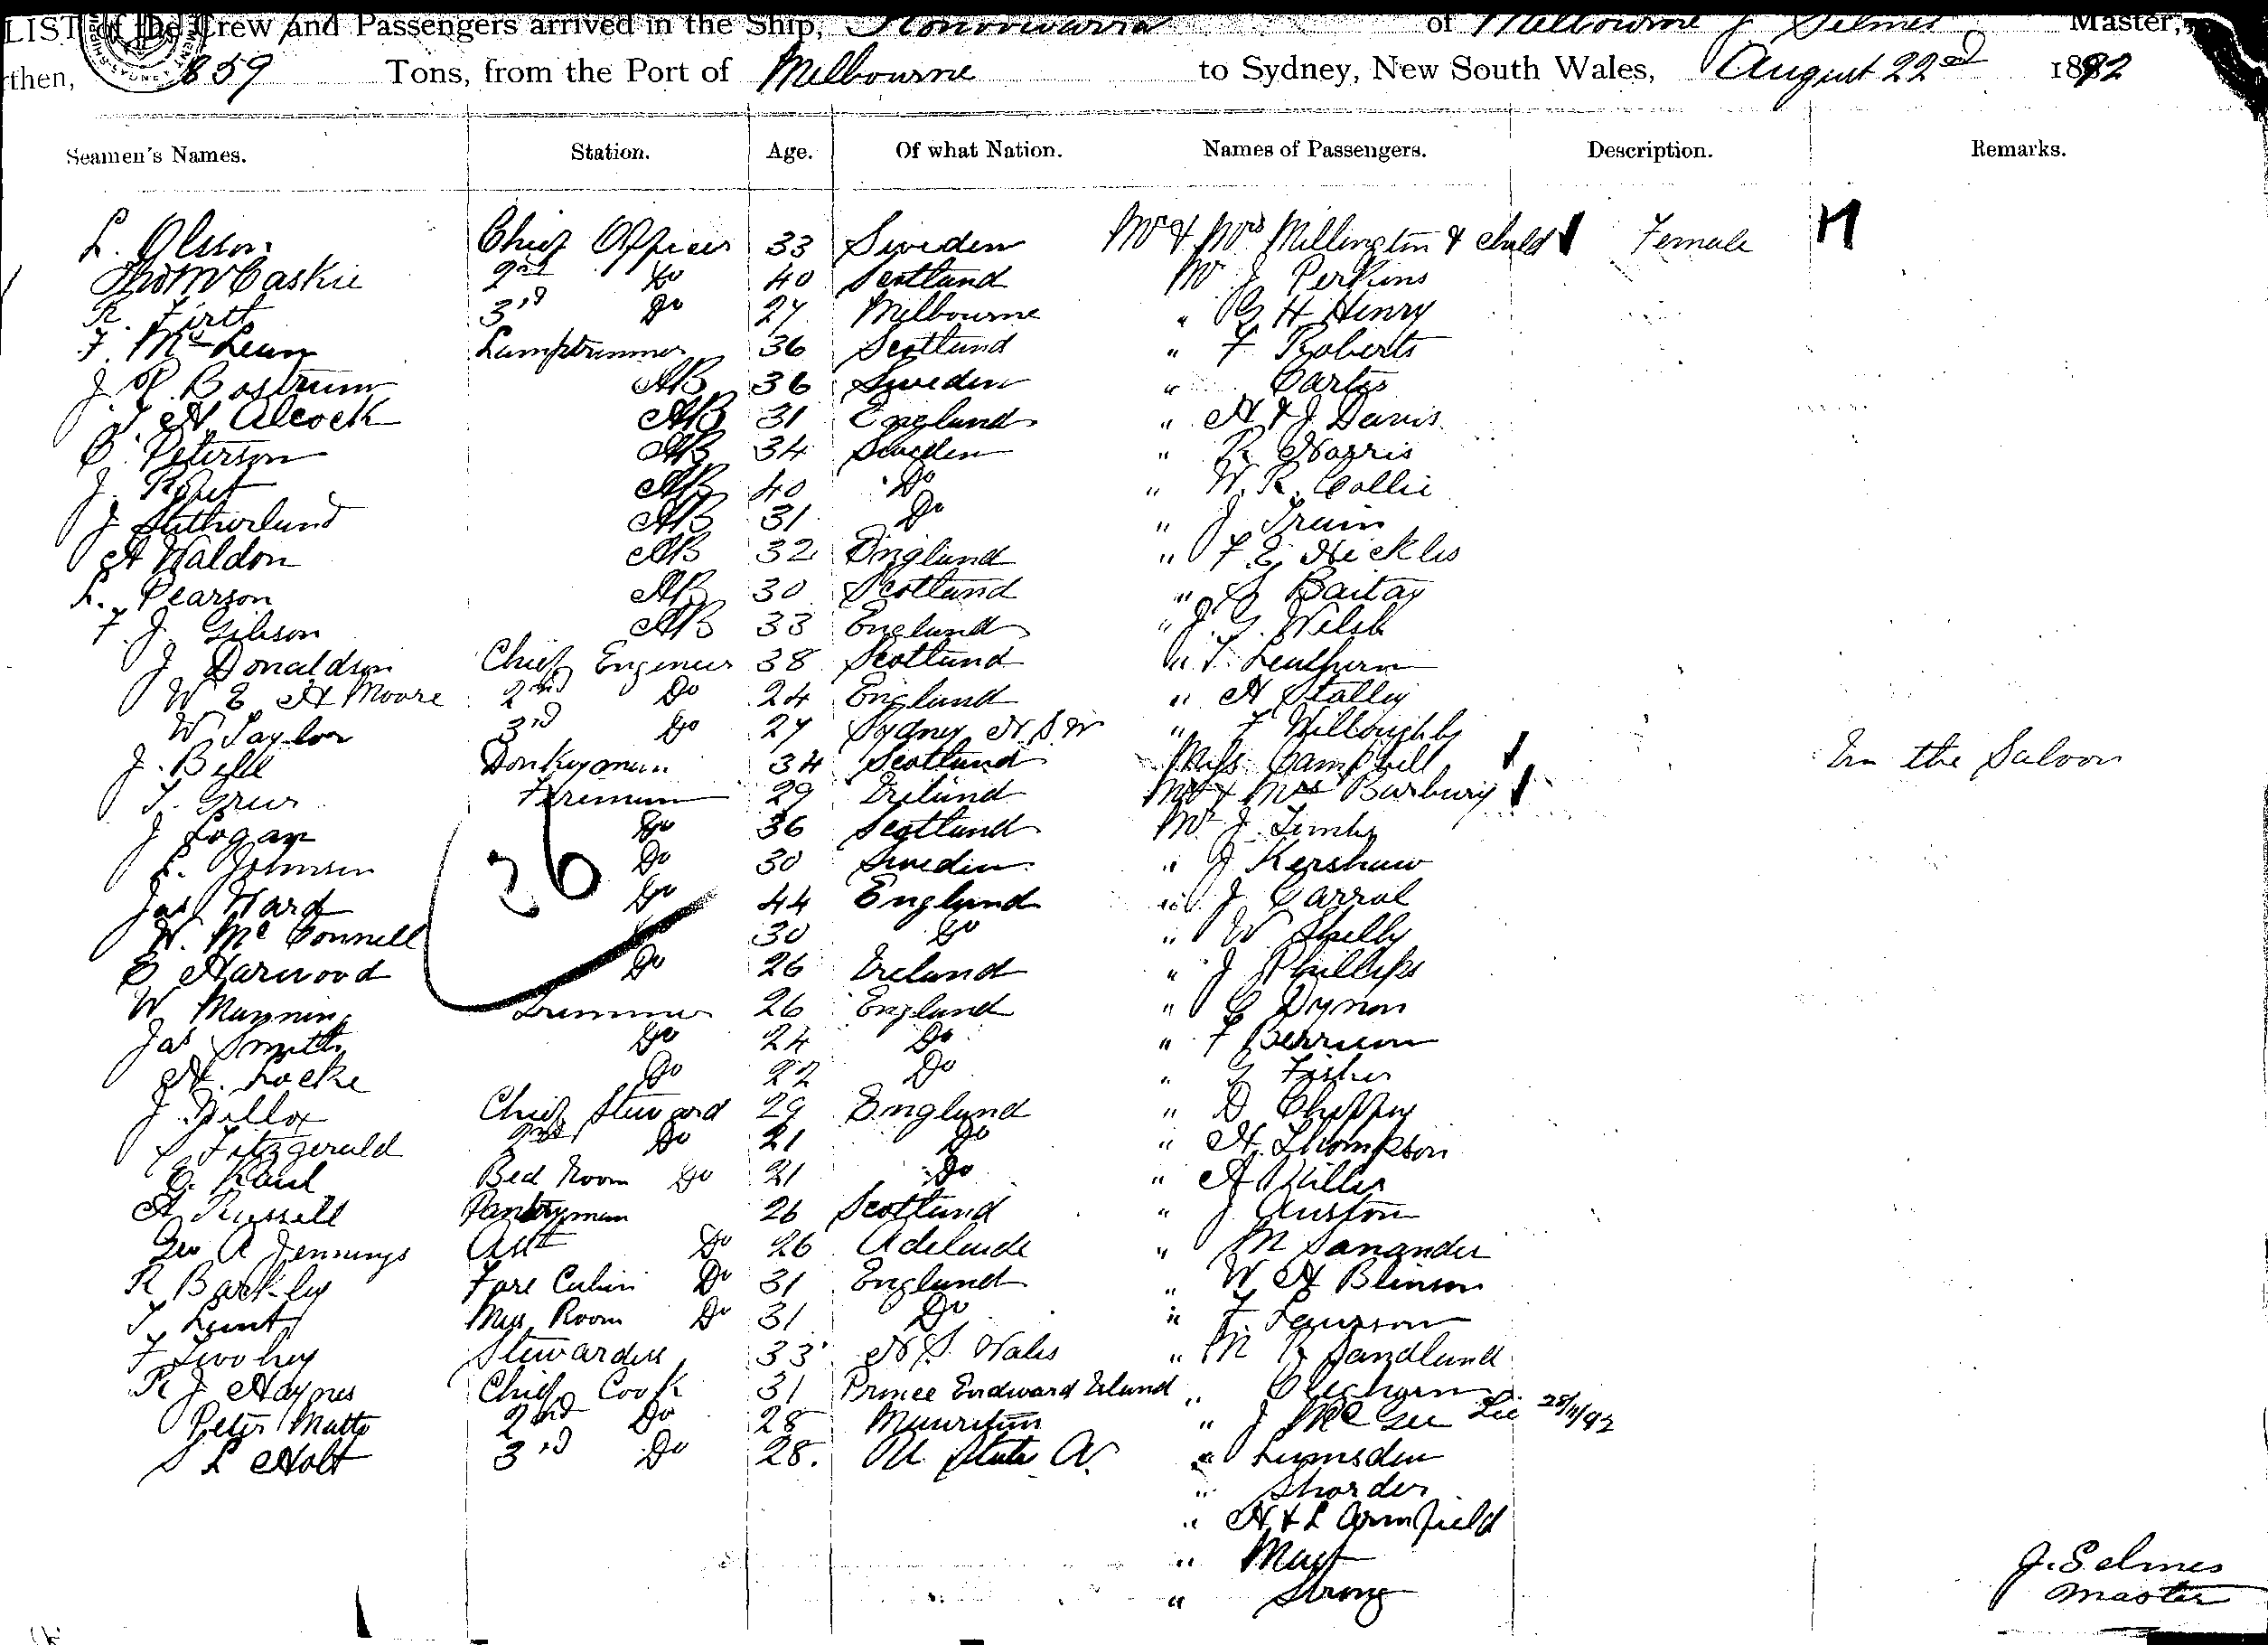 LIST of the Crew and Passengers arrived in the Ship, Konoowarra of Melbourne J Selmes Master,
then, 859 Tons, from the Port of Melbourne to Sydney, New South Wales, August 22nd 1892
Seamen's Names. Station. Age. Of what Nation. Names of Passengers. Description. Remarks.
L. Olsson Chief Officer 33 Sweden Mr & Mrs Millington & child Female
Thos McCaskie 2nd Do 40 Scotland Mr J Perkins
R. Firth 3rd Do 27 Melbourne " G H Henry
F. McLean Lamptrimmer 36 Scotland " F Roberts
J. P. Bostrum AB 36 Sweden "
T. H. Alcock AB 31 England " H & J Davis
C. Peterson AB 34 Sweden " R Harris
J. AB 40 Do " W. R. Collie
J Sutherland AB 31 Do " J Train
A Waldon AB 32 England " F. E. Hickles
L. Pearson AB 30 Scotland "
F. J. Gibson AB 33 England " J. G. Welsh
J Donaldson Chief Engineer 38 Scotland " T.
W E A Moore 2nd Do 24 England " H Stalley
W Taylor 3rd Do 27 Sydney N S W " F Willoughby
J. Bell Donkeyman 34 Scotland Miss Campbell In the Saloon
T. Greer Fireman 29 Ireland Mr & Mrs Burbury
J Logan Do 36 Scotland Mr J
L. Johnson Do 30 Sweden " J Kershaw
Jas Ward Do 44 England " J Carrol
W. McConnell 30 Do " W Shelly
E Harwood Do 26 Ireland " J Phillips
W Manning Trimmer 26 England " C Dynon
Jas Smith Do 24 Do " F
H. Locke Do 22 Do " G Fisher
J. Willox Chief Steward 29 England " D
Fitzgerald 2nd Do 21 Do " H. Thompson
C. Do 21 Do " A
Bed Room
A Russell Pantryman 26 Scotland " J Auston
Geo A Jennings Asst Do 26 Adelaide " M
R Barkley Fore Cabin Do 31 England " W H
T. Lunt Mess Room Do 31 Do " F.
F Twohey Stewardess 33 N. S. Wales " M Sandland
R J Haynes Chief Cook 31 Prince Endward Island " Cleghorn
Peter Matts 2nd Do 28 Mauritius " J McGee 28/11/92
S L Holt 3rd Do 28. U. State A. " Lumsden
"
" H & L Armfield
"
" Strong
36
J. Selmes
Master